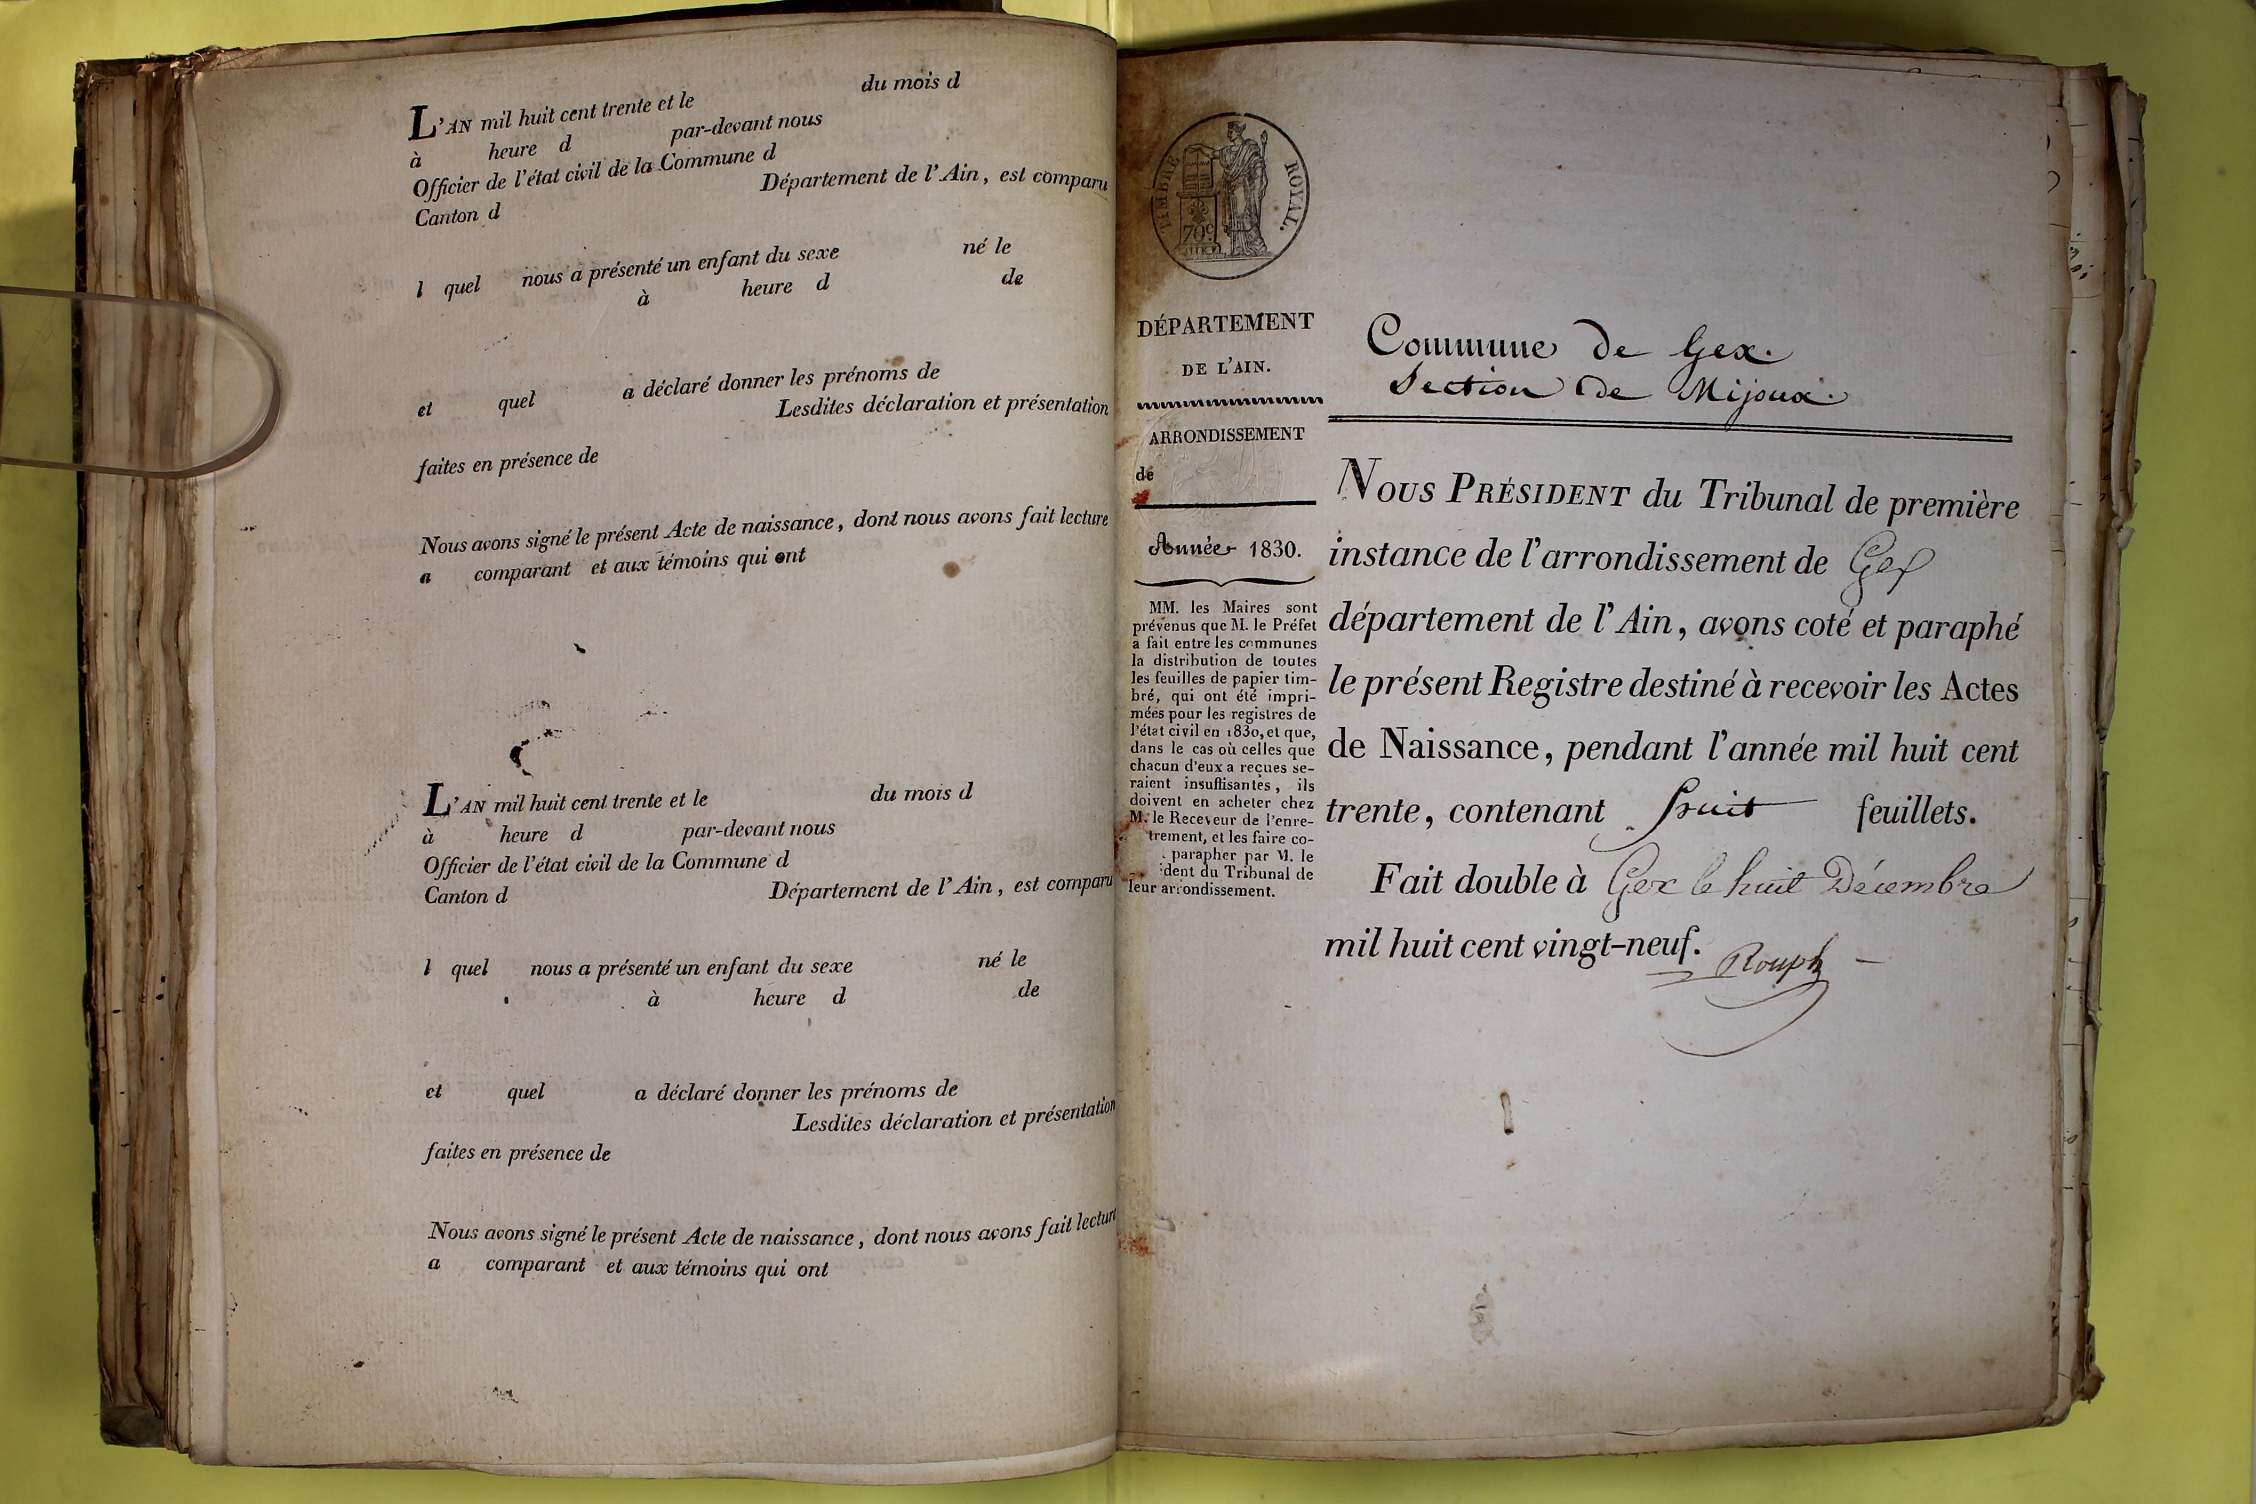 L'AN mil huit cent trente et le du mois d
à heure d par-devant nous
Officier de l'état civil de la Commune d
Canton d Département de l'Ain, est comparu
l quel nous a présenté un enfant du sexe né le
à heure d de
et quel a déclaré donner les prénoms de
Lesdites déclaration et présentation
faites en présence de
Nous avons signé le présent Acte de naissance, dont nous avons fait lecture
a comparant et aux témoins qui ont
L'AN mil huit cent trente et le du mois d
à heure d par-devant nous
Officier de l'état civil de la Commune d
Canton d Département de l'Ain, est comparu
l quel nous a présenté un enfant du sexe né le
à heure d de
et quel a déclaré donner les prénoms de
Lesdites déclaration et présentation
faites en présence de
Nous avons signé le présent Acte de naissance, dont nous avons fait lecture
a comparant et aux témoins qui ont
TIMBRE ROYAL.
70c
DÉPARTEMENT
DE L'AIN.
ARRONDISSEMENT
de
Année 1830.
MM. les Maires sont
prévenus que M. le Préfet
a fait entre les communes
la distribution de toutes
les feuilles de papier tim-
bré, qui ont été impri-
mées pour les registres de
l'état civil en 1830, et que,
dans le cas où celles que
chacun d'eux a reçues se-
raient insuffisantes, ils
doivent en acheter chez
M. le Receveur de l'enre-
trement, et les faire co-
parapher par M. le
dent du Tribunal de
leur arrondissement.
Commune de Gex.
Section de Mijoux.
NOUS PRÉSIDENT du Tribunal de première
instance de l'arrondissement de Gex
département de l'Ain, avons coté et paraphé
le présent Registre destiné à recevoir les Actes
de Naissance, pendant l'année mil huit cent
trente, contenant huit feuillets.
Fait double à Gex le huit Décembre
mil huit cent vingt-neuf.
Rouph